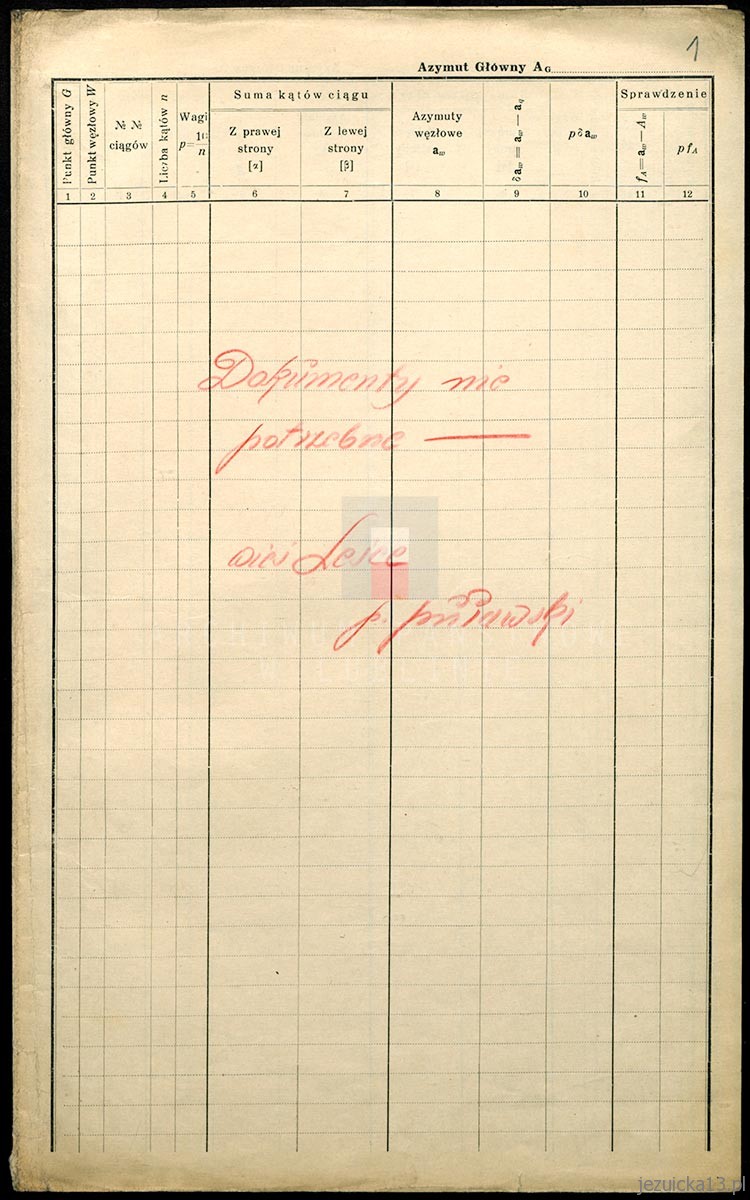 1
Azymut Główny A_G
Punkt główny G
Punkt węzłowy W
№ №
ciągów
Liczba kątów n
Wagi
p = 10/n
Suma kątów ciągu
Z prawej
strony
[α]
Z lewej
strony
[β]
Azymuty
węzłowe
a_w
δa_w = a_w — a_q
p δ a_w
Sprawdzenie
f_A = a_w — A_w
p f_A
1 2 3 4 5 6 7 8 9 10 11 12
Dokumenty nie
potrzebne —
wieś Lesce
p. puławski
ARCHIWUM PAŃSTWOWE
W LUBLINIE
jezuicka13.pl